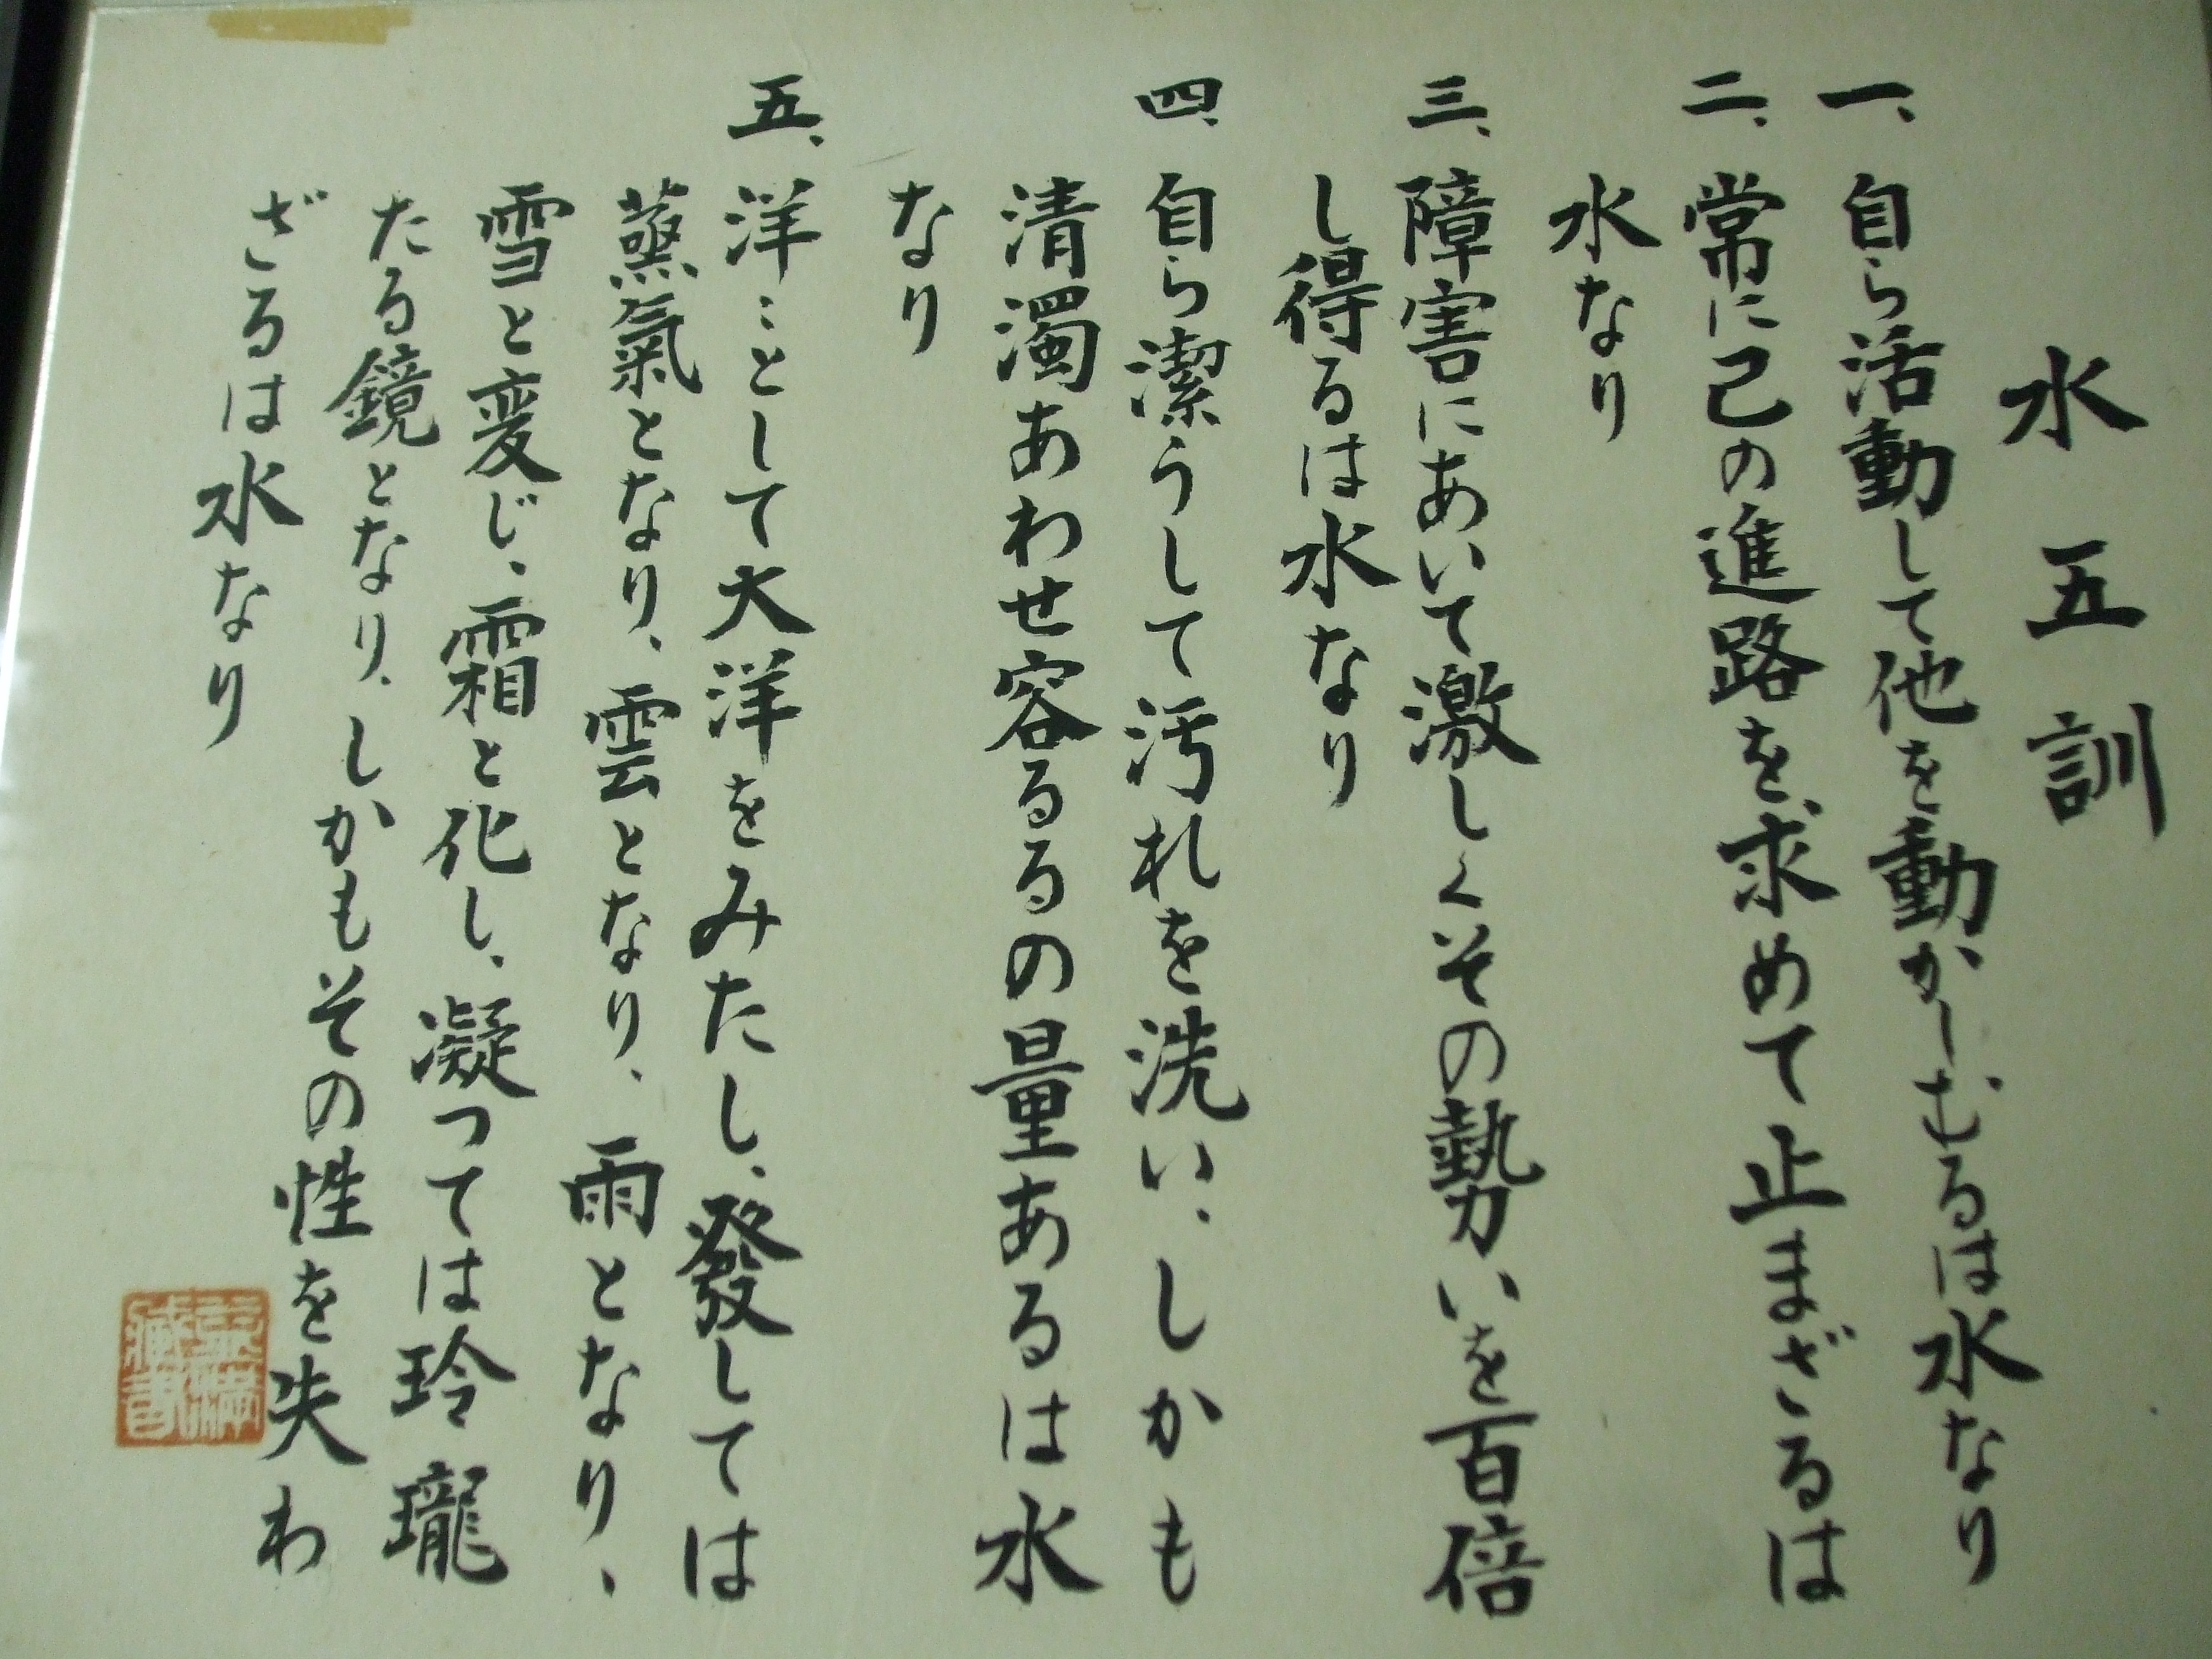 水五訓
一、自ら活動して他を動かしむるは水なり
二、常に己の進路を求めて止まざるは
水なり
三、障害にあいて激しくその勢いを百倍
し得るは水なり
四、自ら潔うして汚れを洗い、しかも
清濁あわせ容るるの量あるは水
なり
五、洋〻として大洋をみたし、發しては
蒸氣となり、雲となり、雨となり、
雪と変じ、霜と化し、凝つては玲瓏
たる鏡となり、しかもその性を失わ
ざるは水なり